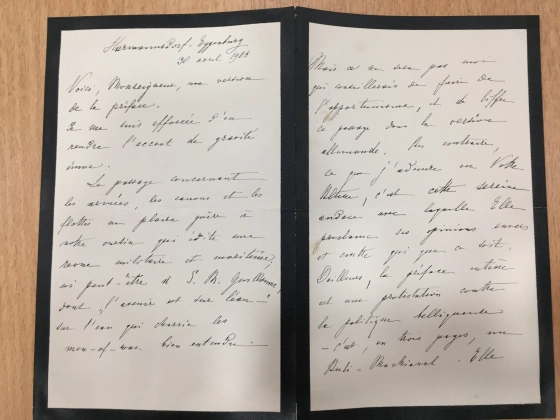 Harmannsdorf-Eggenburg
30 avril 1903
Voici, Monseigneur, ma version
de la préface.
Je me suis efforcée d'en
rendre l'accent de gravité
émue.
Le passage concernant
les armées, les canons et les
flottes ne plaira guère à
notre cousin qui édite une
revue militaire et maritime,
ni peut-être à S. M. Guillaume,
dont „l'avenir est sur l'eau –"
sur l'eau qui charrie les
men-of-war bien entendu.
Mais ce ne sera pas moi
qui conseillerais de faire de
l'opportunisme, et de biffer
ce passage dans la version
allemande. Au contraire,
ce que j'admire en Votre
Altesse, c'est cette sereine
audace avec laquelle Elle
proclame ses opinions envers
et contre qui que ce soit.
D'ailleurs, la préface entière
est une protestation contre
la politique belligérante
– c'est, en trois pages, un
Anti-Machiavel. Elle